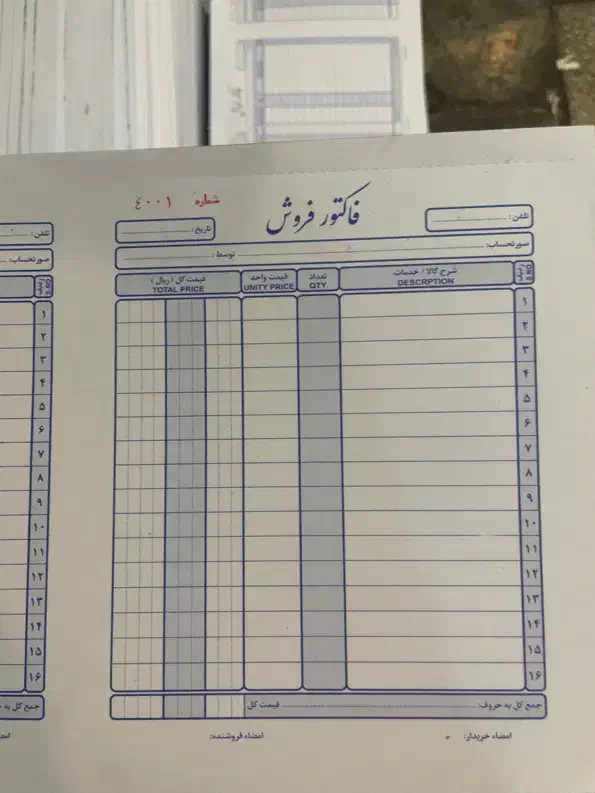 فاکتور فروش
شماره ٤٠٠١
تلفن:
تاریخ:
صورتحساب: توسط:
ردیف S.NO
شرح کالا / خدمات DESCRPTION
تعداد QTY
قیمت واحد UNITY PRICE
قیمت کل (ریال) TOTAL PRICE
۱
۲
۳
۴
۵
۶
۷
۸
۹
۱۰
۱۱
۱۲
۱۳
۱۴
۱۵
۱۶
جمع کل به حروف: قیمت کل
امضاء خریدار: امضاء فروشنده:
تلفن:
صورتحساب:
ردیف S.NO
۱
۲
۳
۴
۵
۶
۷
۸
۹
۱۰
۱۱
۱۲
۱۳
۱۴
۱۵
۱۶
جمع کل به